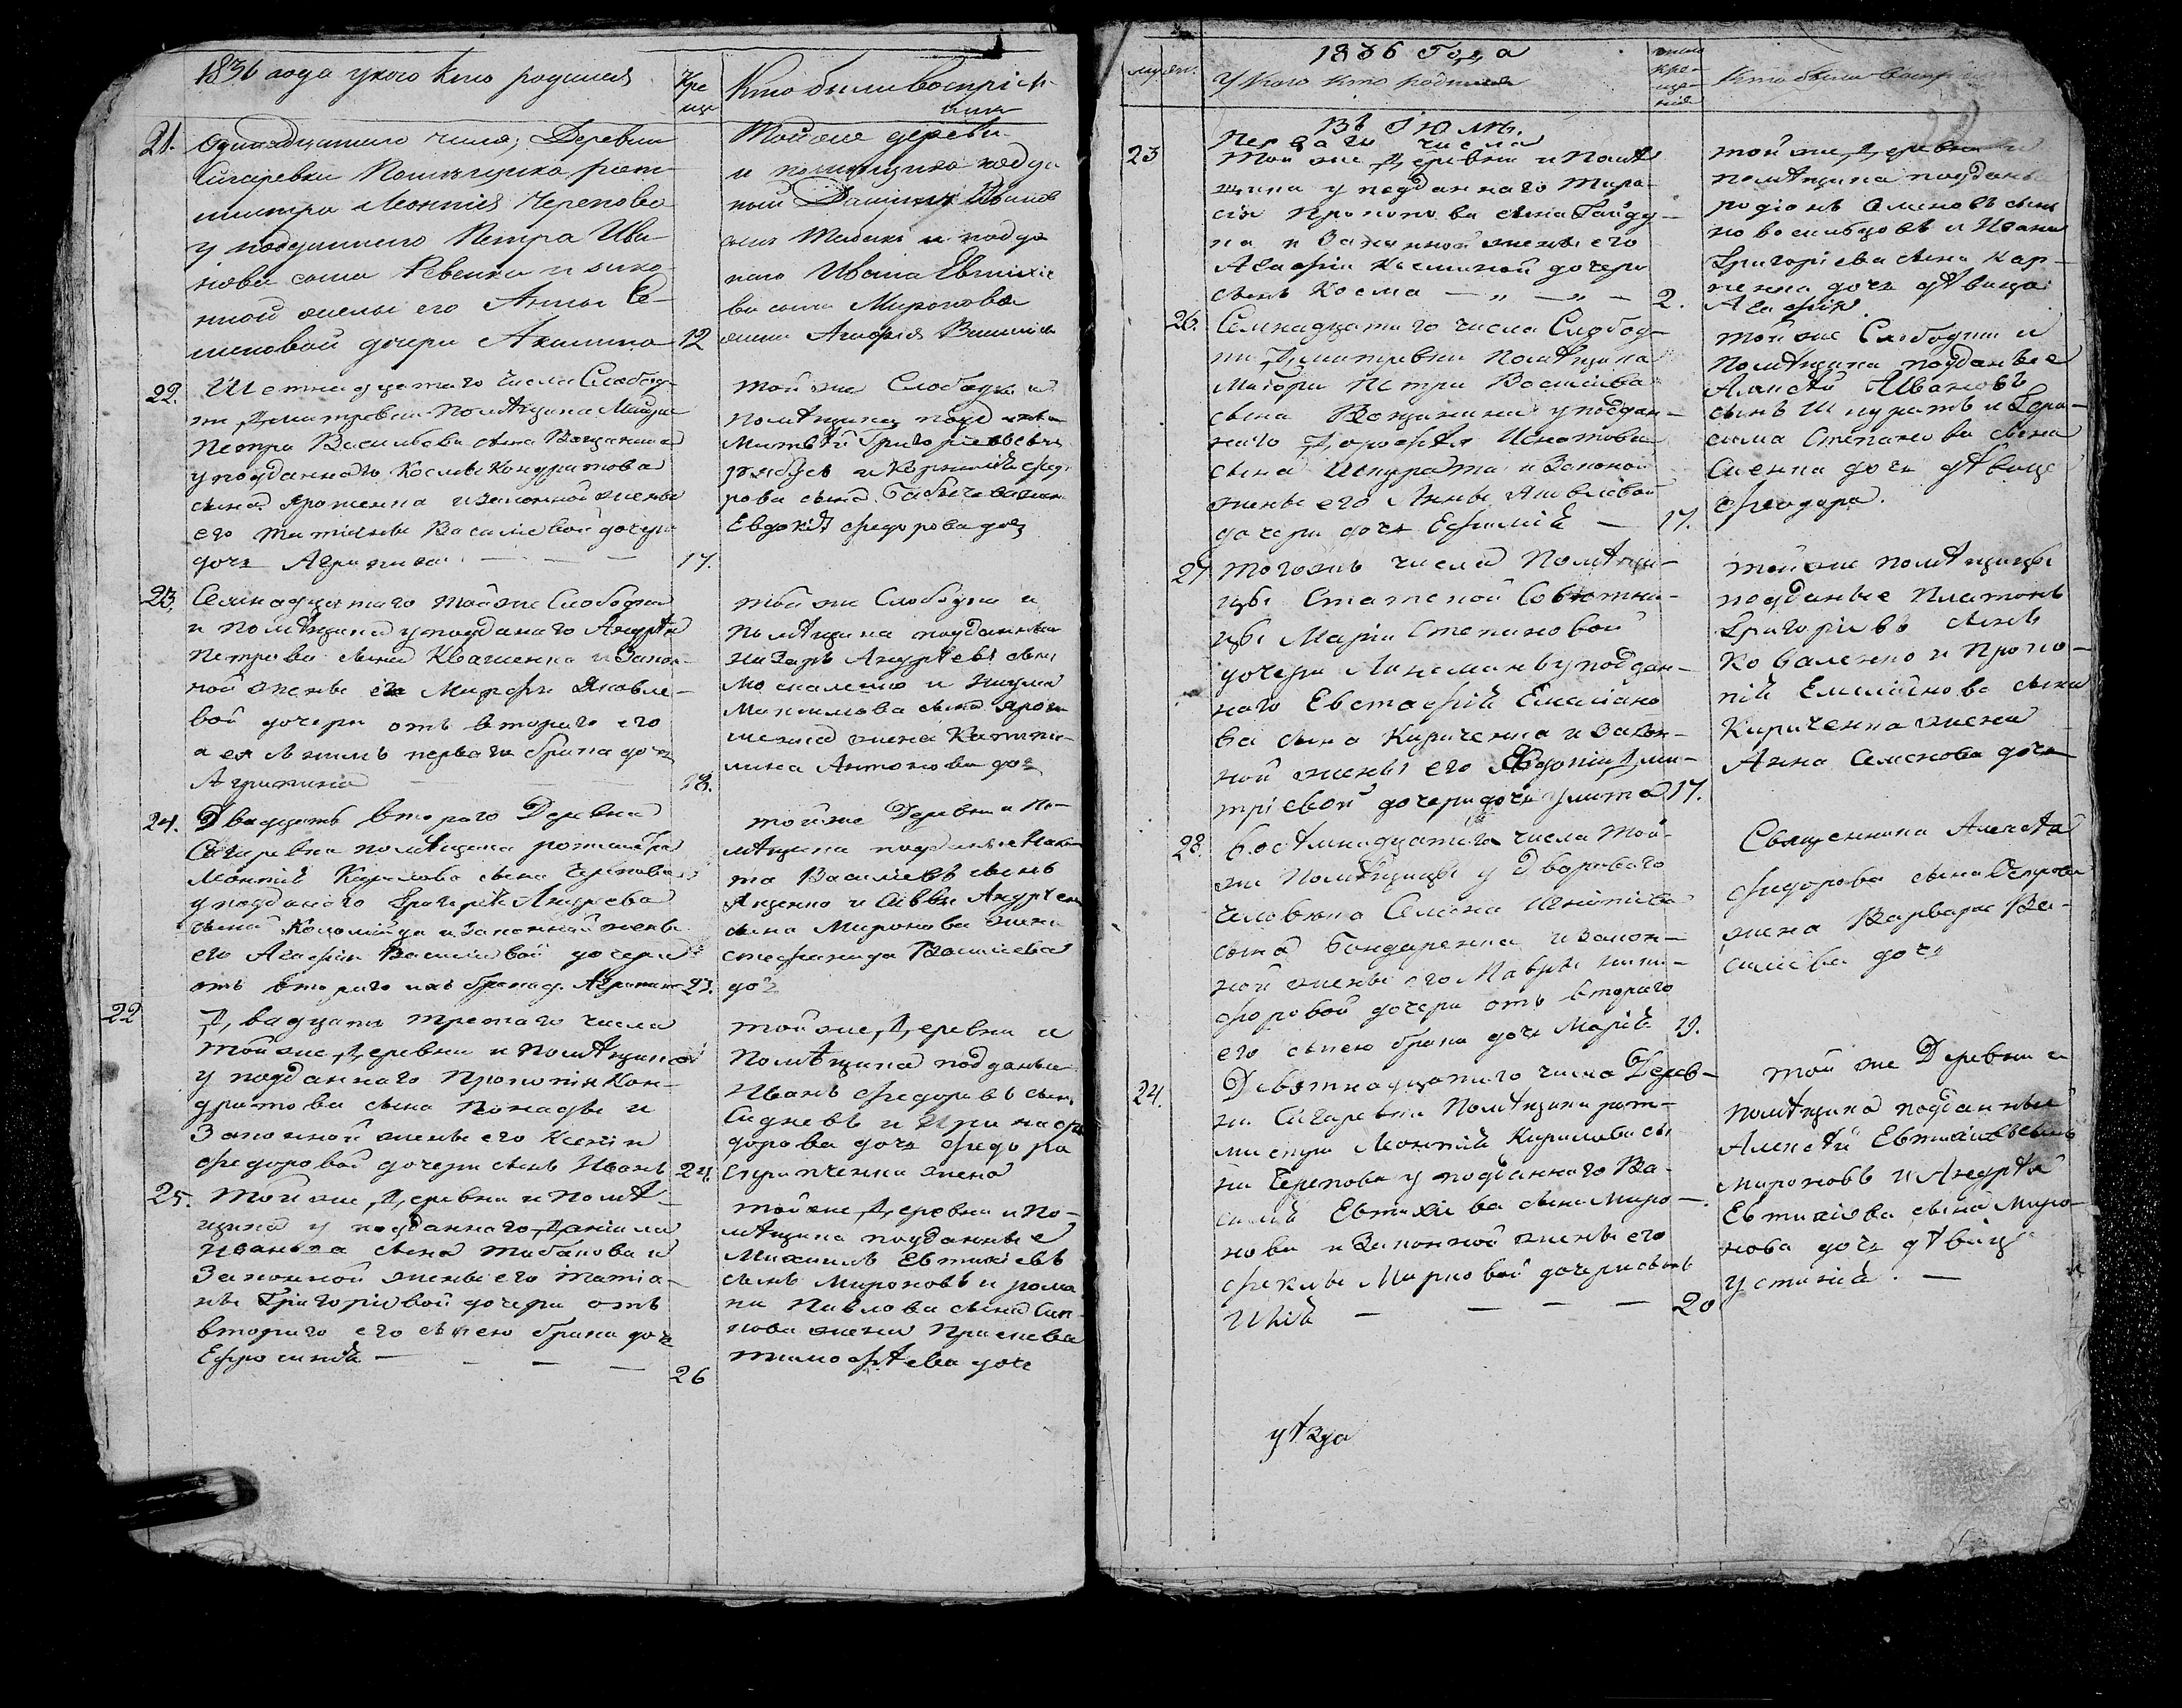 1836 года у кого кто родился
Кре
ще
Кто были воспріем
ники
21.
одинадцатаго числа, Деревни
Сигаревки Помѣщика рот-
мистра Леонтія Черепова
у подданнаго Петра Ива-
нова сына Ревенка и зако-
нной жены его Анны Се-
меновой дочери Акилина 12
Тойже деревни
и помѣщика подда
ной Иванов
сынъ и подда
наго Ивана Евтихіе
ва сына Миронова
жена Агафія
22.
Шестнадцатаго числа Слобод-
ки Дмитревки Помѣщика Маіора
Петра Васильева сына Вощинина
у подданнаго Космы Кондратова
сына Ярошенка и законной жены
его татіяны Василіевой дочери
дочь Агрипина 17.
той же Слободки и
помѣщика
Матвѣй Григоріевъ сынъ
и Корнилія федо
рова сына
Евдокія федорова доч
23.
Семнадцатаго той же Слободки
и помѣщика у подданаго Андрѣя
Петрова сына Квашенка и Закон-
ной жены его Марфы Яковле-
вой дочери отъ втораго его
а ея съ нимъ перваго брака дочь
Агрипина 18.
той же Слободки и
помѣщика подданные
Назаръ Андрѣевъ сынъ
Москаленко и Наума
Максимова сына Ярош
менка жена Катери-
лина Антонова доч
24.
Двадцать втораго Деревни
Сигаревки помѣщика ротмистра
Леонтія Кирилова сына Черепова
у подданаго Григорія Андреева
сына Коломійца и Законной жены
его Агафіи Василіевой дочери
отъ втораго ихъ брака д. Агрипина 23.
той же Деревни и По-
мѣщика подданые Ники
та Василіевъ сынъ
Яценко и Саввы Андрѣева
сына Миронова жена
стефанида Василіева
доч
22
Двадцать третаго числа
той же Деревни и Помѣщика
у подданнаго Прокопія Кон-
дратова сына Понады и
Законной жены его Ксеніи
федоровой дочери сынъ Иванъ 24.
той же Деревни и
Помѣщика подданые
Иванъ федоровъ сынъ
Сидневъ и Ирина фе
дорова дочь федора
Скрипченка жена
25.
Той же Деревни и Помѣ-
щика у подданнаго Даніила
Иванова сына табакова и
Законной жены его татіа-
ны Григоріевой дочери отъ
втораго его съ нею брака дочь
Ефросинія 26
той же Деревни и По-
мѣщика подданные
Михаилъ Евтихіевъ
сынъ Мироновъ и рома
на Павлова сына Сит-
нова жена Прасковья
тимофѣева дочь
1836 Года
У кого кто родился
число
кре-
ще-
нія
Кто были воспр
Въ Іюлѣ.
Перваго числа
23
Той же Деревни и Помѣ
щика у подданнаго Тара-
сія Прокопова сына Гайду-
ка и Законной жены его
Агафіи Косминой дочери
сынъ Косма — „ — „ — 2.
той же Деревни и
помѣщика поддан
родіонъ Семеновъ сынъ
новосильцовъ и Ивана
Григоріева сына Кар-
пенка дочь дѣвица
Агафія.
26.
Семнадцатаго числа Слобод-
ки Дмитревки Помѣщика
Маіора Петра Василіева
сына Вощинина у поддан-
наго Дорофѣя Игнатова
сына Шкурата и Законой
жены его Анны Яковлевой
дочери дочь Ефимія — 17.
той же Слободки и
Помѣщика подданые
Алексѣй Ивановъ
сынъ Шкуратъ и Гера-
сима Степанова сына
Сиенка дочь дѣвица
феодора.
27
тогожъ числа Помѣщи-
цы Статской Совѣтни-
цы Маріи Степановой
дочери у поддан-
наго Евстафія Емеліано
ва сына Кириченка и закон-
ной жены его Евдокіи Дми-
тріевой дочери дочь Улита 17.
той же помѣщицы
подданые Платонъ
Григоріевъ сынъ
Коваленко и Проко-
пій Емеліянова сына
Кириченка жена
Анна Семенова дочь
28.
Восѣмнадцатаго числа той-
же Помѣщицы у Двороваго
человѣка Семена Игнатіева
сына Бондаренка и закон-
ной жены его Мавры Ники-
форовой дочери отъ втораго
его съ нею брака дочь Марія 19.
Священника Алексѣя
федорова сына
жена Варвара Ва-
силіева дочь
24.
Девятнадцатаго числа Дерев-
ни Сигаревки Помѣщика рот-
мистра Леонтія Кирилова сы
на Черепова у подданнаго Ва-
силія Евтихіева сына Миро-
нова и Законной жены его
феклы Марковой дочери сынъ
Илія — — — — 20
той же Деревни и
Помѣщика подданные
Алексѣй Евтихіевъ сынъ
Мироновъ и Андрѣя
Евтихіева сына Миро-
нова дочь дѣвица
устинія. —
уѣзда